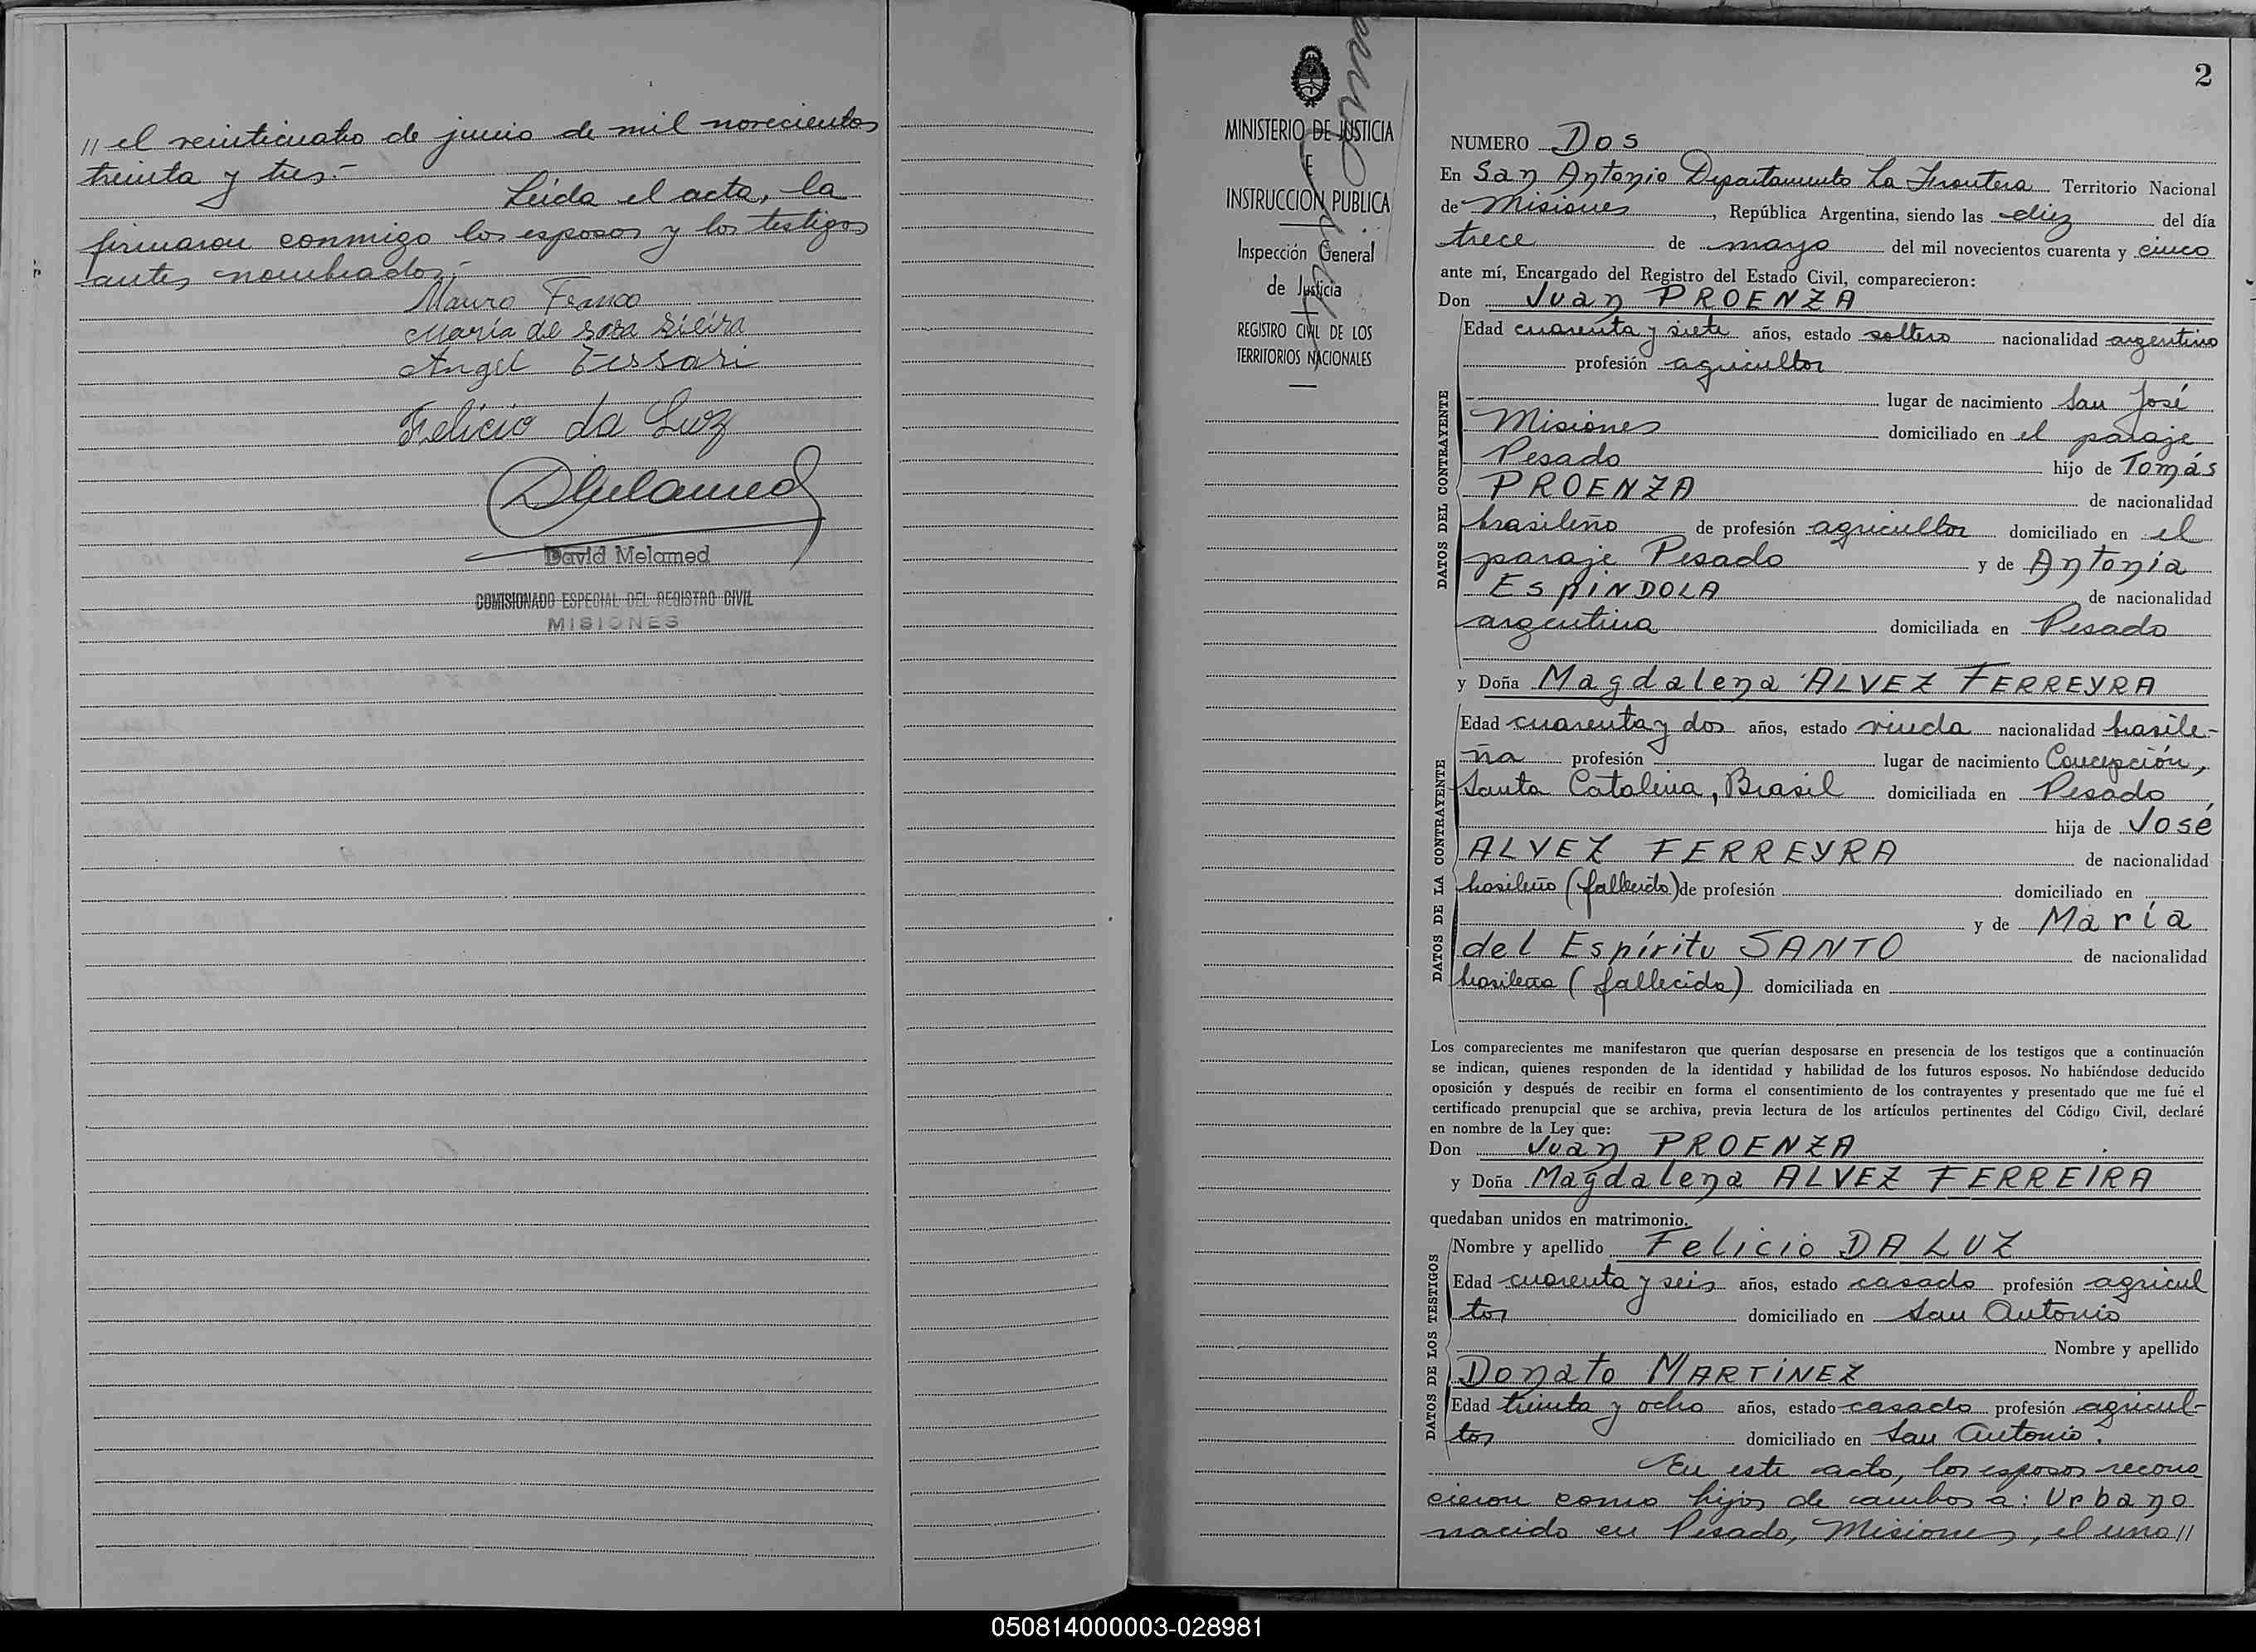 // el veinticuatro de junio de mil novecientos
treinta y tres.-
Leida el acta, la
firmaron conmigo los esposos y los testigos
antes nombrados.-
Mauro Franco
María de Sosa Sieira
Angel Tessari
Felicio da Luz
DMelamed
David Melamed
COMISIONADO ESPECIAL DEL REGISTRO CIVIL
MISIONES
MINISTERIO DE JUSTICIA
E
INSTRUCCION PUBLICA
Inspección General
de Justicia
REGISTRO CIVIL DE LOS
TERRITORIOS NACIONALES
2
NUMERO Dos
En San Antonio Departamento La Frontera Territorio Nacional
de Misiones, República Argentina, siendo las diez del día
trece de mayo del mil novecientos cuarenta y cinco
ante mí, Encargado del Registro del Estado Civil, comparecieron:
Don Juan PROENZA
DATOS DEL CONTRAYENTE
Edad cuarenta y siete años, estado soltero nacionalidad argentino
profesión agricultor
lugar de nacimiento San José
Misiones domiciliado en el paraje
Pesado hijo de Tomás
PROENZA de nacionalidad
brasileño de profesión agricultor domiciliado en el
paraje Pesado y de Antonia
ESPINDOLA de nacionalidad
argentina domiciliada en Pesado
y Doña Magdalena ALVEZ FERREYRA
DATOS DE LA CONTRAYENTE
Edad cuarenta y dos años, estado viuda nacionalidad brasile-
ña profesión lugar de nacimiento Concepción,
Santa Catalina, Brasil domiciliada en Pesado,
hija de José
ALVEZ FERREYRA de nacionalidad
brasileño (fallecido) de profesión domiciliado en
y de María
del Espíritu SANTO de nacionalidad
brasileña (fallecida) domiciliada en
Los comparecientes me manifestaron que querían desposarse en presencia de los testigos que a continuación
se indican, quienes responden de la identidad y habilidad de los futuros esposos. No habiéndose deducido
oposición y después de recibir en forma el consentimiento de los contrayentes y presentado que me fué el
certificado prenupcial que se archiva, previa lectura de los artículos pertinentes del Código Civil, declaré
en nombre de la Ley que:
Don Juan PROENZA
y Doña Magdalena ALVEZ FERREIRA
quedaban unidos en matrimonio.
DATOS DE LOS TESTIGOS
Nombre y apellido Felicio DA LUZ
Edad cuarenta y seis años, estado casado profesión agricul
tor domiciliado en San Antonio
Nombre y apellido
Donato MARTINEZ
Edad treinta y ocho años, estado casado profesión agricul-
tor domiciliado en San Antonio.
En este acto, los esposos recono
cieron como hijos de ambos a: Urbano
nacido en Pesado, Misiones, el uno //
050814000003-028981